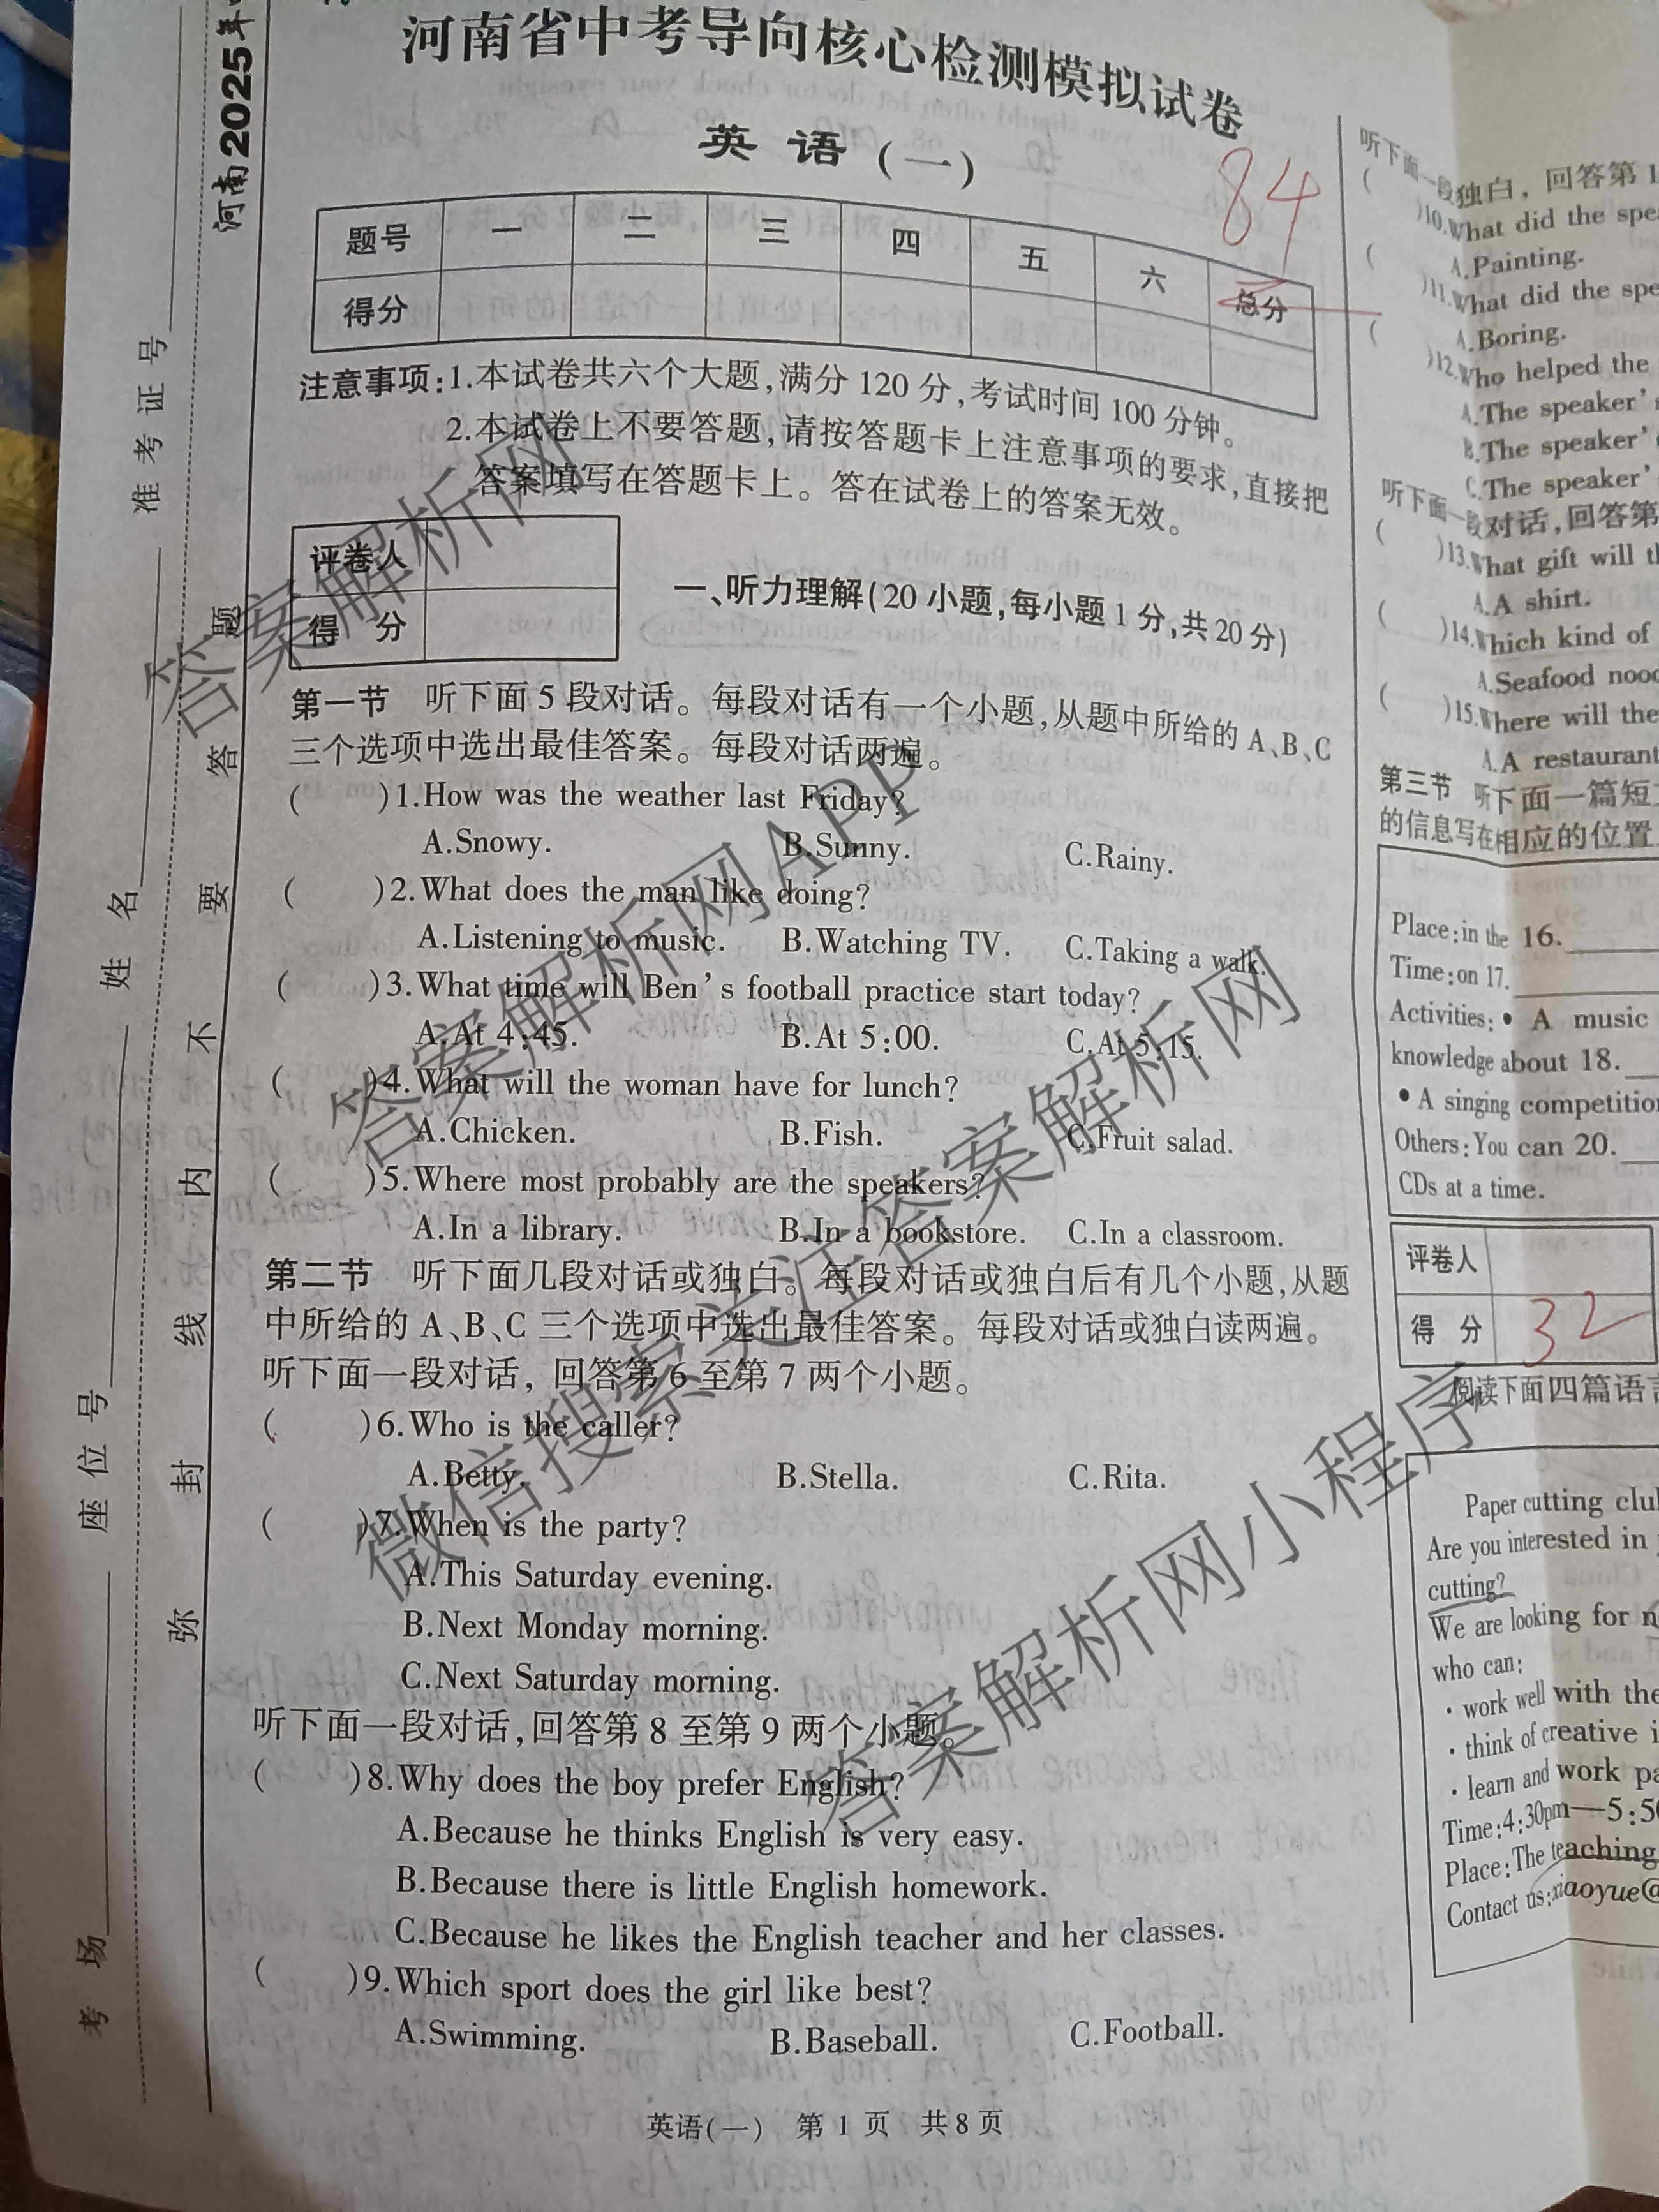 河南2025年
准考证号
姓名
座位号
考场
弥封线内不要答题
河南省中考导向核心检测模拟试卷
英语(一)
84
题号 一 二 三 四 五 六 总分
得分
注意事项:1.本试卷共六个大题,满分120分,考试时间100分钟。
2.本试卷上不要答题,请按答题卡上注意事项的要求,直接把
答案填写在答题卡上。答在试卷上的答案无效。
评卷人
得 分
一、听力理解(20小题,每小题1分,共20分)
第一节 听下面5段对话。每段对话有一个小题,从题中所给的A、B、C
三个选项中选出最佳答案。每段对话两遍。
( )1.How was the weather last Friday?
A.Snowy. B.Sunny. C.Rainy.
( )2.What does the man like doing?
A.Listening to music. B.Watching TV. C.Taking a walk.
( )3.What time will Ben's football practice start today?
A.At 4:45. B.At 5:00. C.At 5:15.
( )4.What will the woman have for lunch?
A.Chicken. B.Fish. C.Fruit salad.
( )5.Where most probably are the speakers?
A.In a library. B.In a bookstore. C.In a classroom.
第二节 听下面几段对话或独白。每段对话或独白后有几个小题,从题
中所给的A、B、C三个选项中选出最佳答案。每段对话或独白读两遍。
听下面一段对话,回答第6至第7两个小题。
( )6.Who is the caller?
A.Betty. B.Stella. C.Rita.
( )7.When is the party?
A.This Saturday evening.
B.Next Monday morning.
C.Next Saturday morning.
听下面一段对话,回答第8至第9两个小题。
( )8.Why does the boy prefer English?
A.Because he thinks English is very easy.
B.Because there is little English homework.
C.Because he likes the English teacher and her classes.
( )9.Which sport does the girl like best?
A.Swimming. B.Baseball. C.Football.
英语(一) 第1页 共8页
听下面一段独白,回答第1
( )10.What did the spea
A.Painting.
( )11.What did the spe
A.Boring.
( )12.Who helped the
A.The speaker's
B.The speaker'
C.The speaker'
听下面一段对话,回答第
( )13.What gift will t
A.A shirt.
( )14.Which kind of
A.Seafood nood
( )15.Where will the
A.A restaurant
第三节 听下面一篇短
的信息写在相应的位置
Place:in the 16.
Time:on 17.
Activities:•A music
knowledge about 18.
•A singing competitio
Others:You can 20.
CDs at a time.
评卷人
得 分 32
阅读下面四篇语
Paper cutting clu
Are you interested in
cutting?
We are looking for n
who can:
·work well with the
·think of creative i
·learn and work pa
Time:4:30pm—5:5
Place:The teaching
Contact us:xiaoyue@
答案解析网
答案解析网APP
微信搜索关注答案解析网
答案解析网小程序